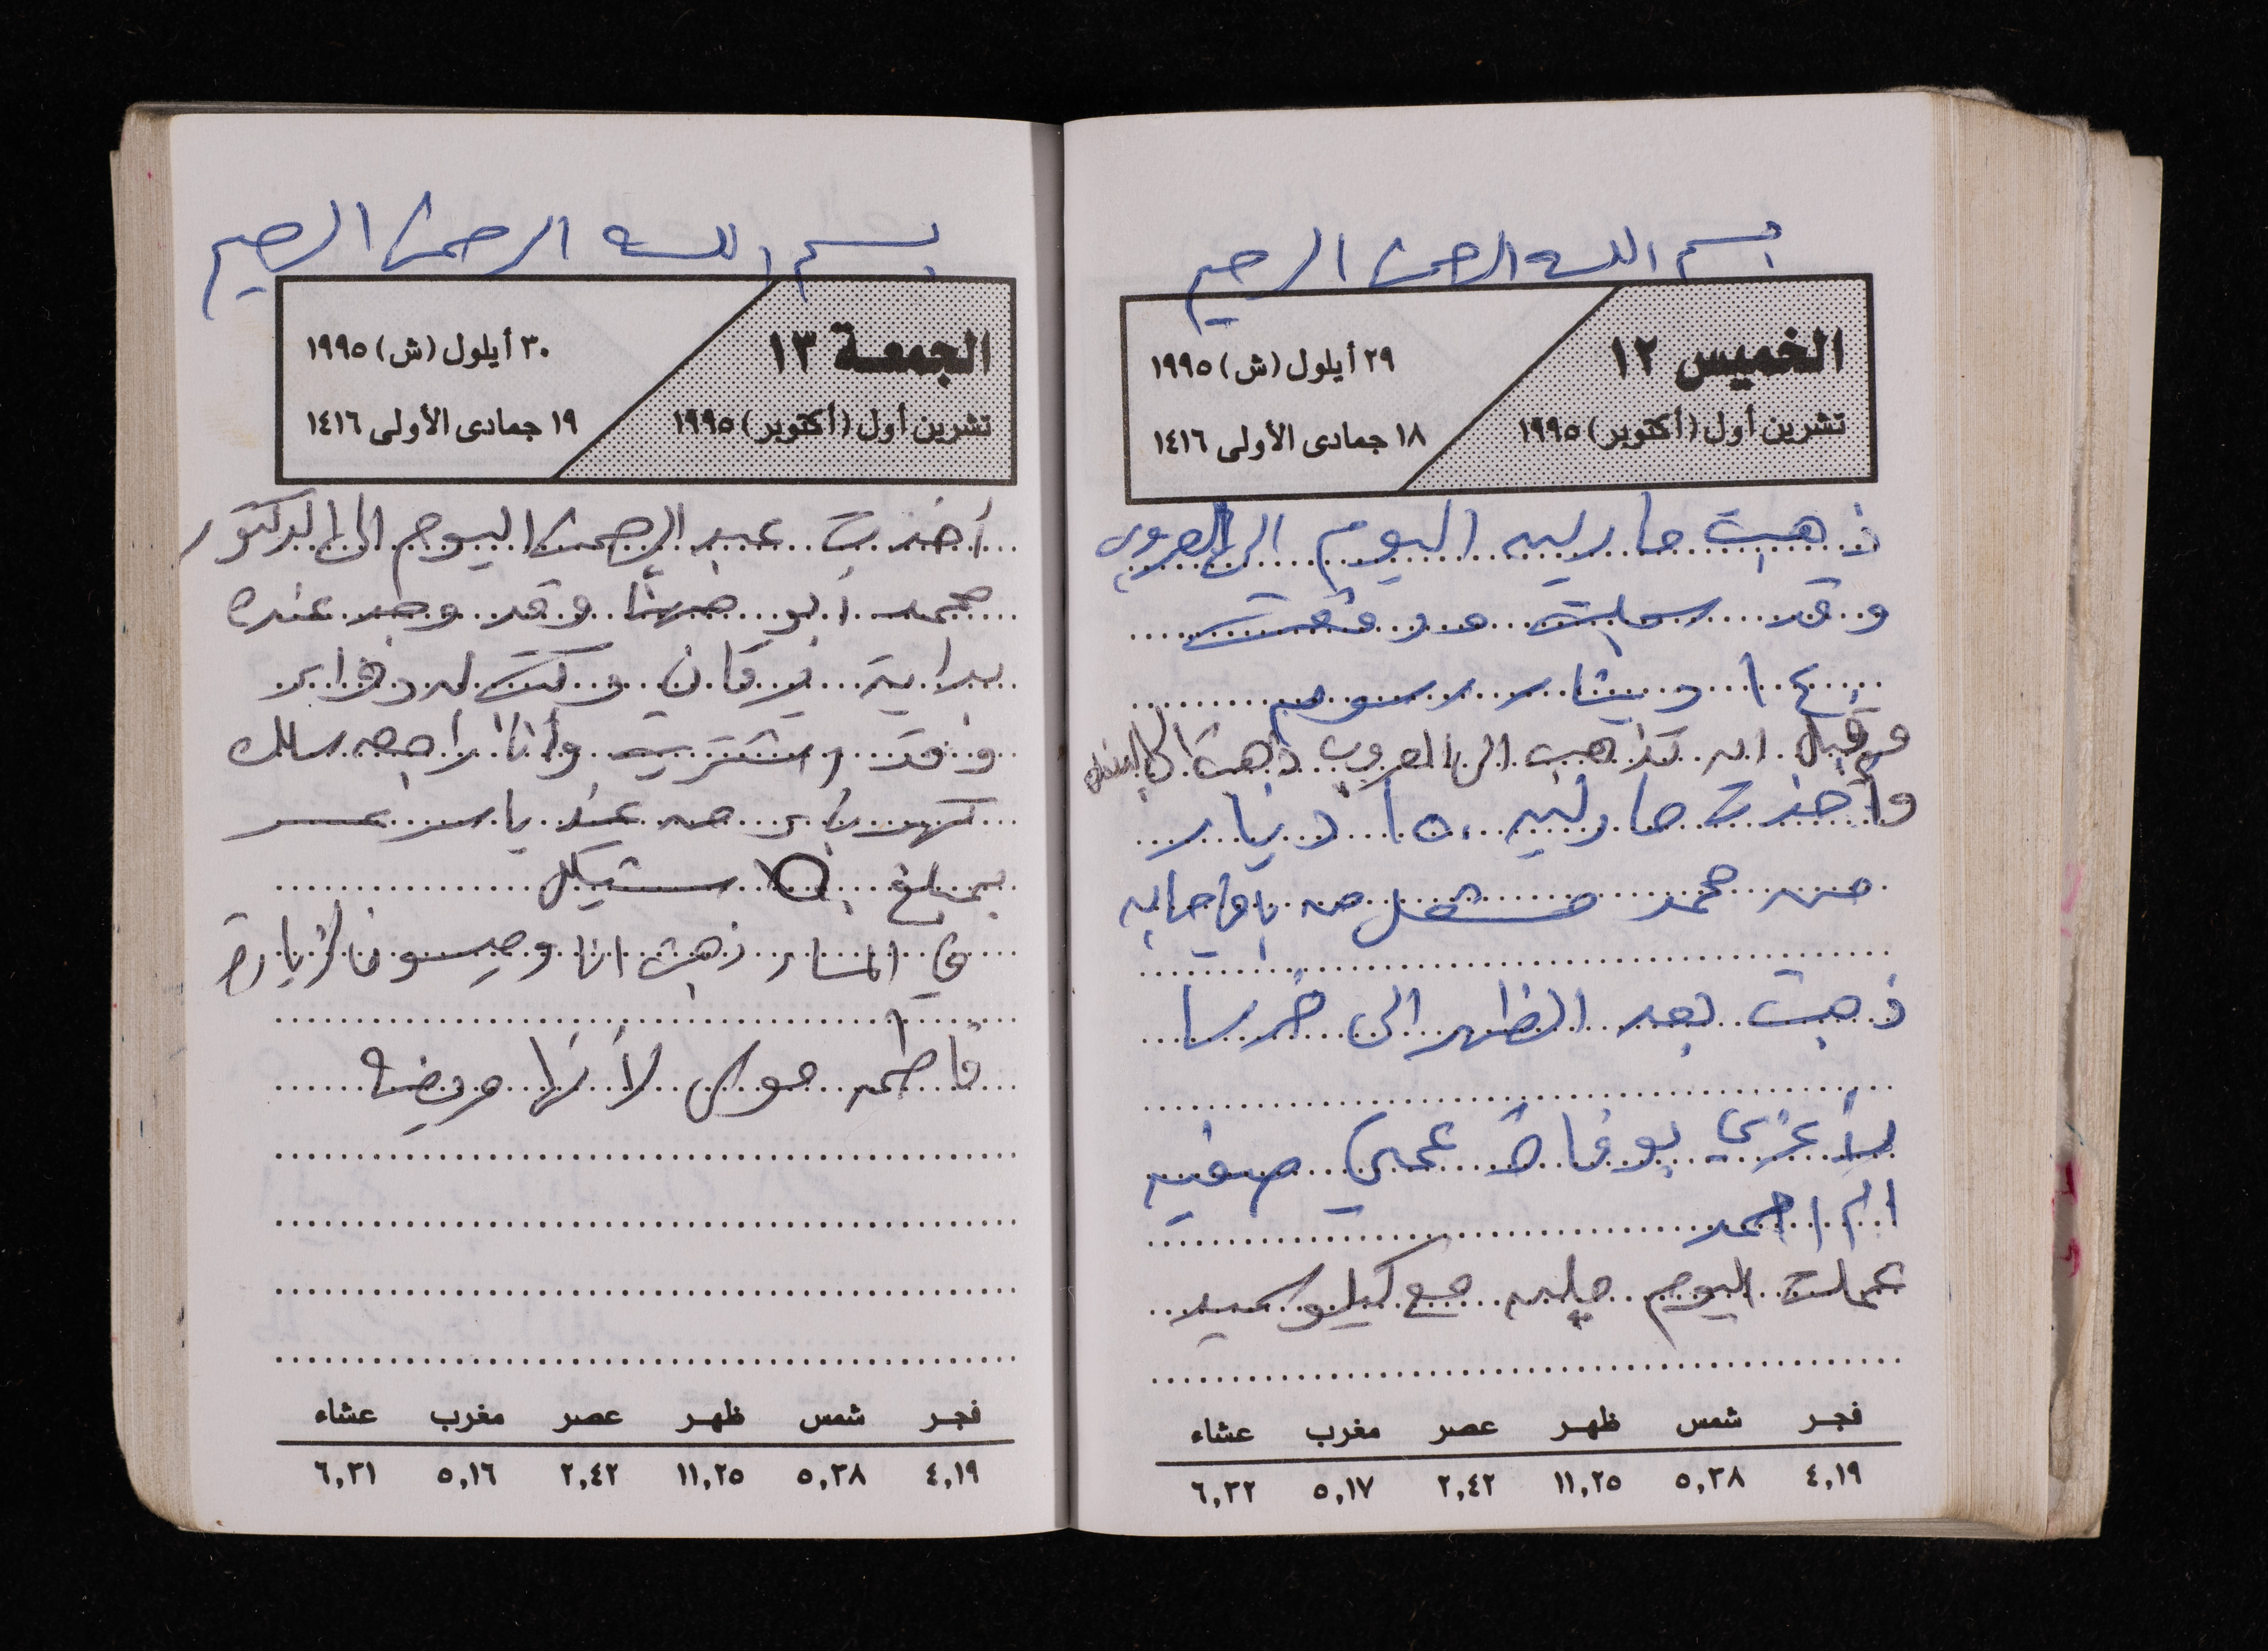 بسم الله الرحمن الرحيم
الخميس ١٢
تشرين أول (أكتوبر) ١٩٩٥
٢٩ أيلول (ش) ١٩٩٥
١٨ جمادى الأولى ١٤١٦
ذهبت مارلين اليوم الى العروب
وقد سجلت ودفعت
١٤٠ دينار رسوم
وقبل ان تذهب الى العروب ذهبت الى
وأخذت مارلين ١٥٠ دينار
من محمد مشعل من باقي حسابه
ذهبت بعد الظهر الى خرسا
لأعزي بوفاة عمتي صفيه
ام احمد
عملت اليوم جلبه مع كيلو سميد
فجر شمس ظهر عصر مغرب عشاء
٤,١٩ ٥,٣٨ ١١,٢٥ ٢,٤٢ ٥,١٧ ٦,٣٢
بسم الله الرحمن الرحيم
الجمعة ١٣
تشرين أول (أكتوبر) ١٩٩٥
٣٠ أيلول (ش) ١٩٩٥
١٩ جمادى الأولى ١٤١٦
أخذت عبد الرحمن اليوم الى الدكتور
محمد أبو وقد وجد عنده
بداية يرقان وكتب له
وقد اشتريت وأنا راجعه سلك
كهرباء من عند ياسر عمر
بمبلغ شيكل
في المساء ذهبت انا وميسون لزيارة
فاطمه موسى لأنها مريضه
فجر شمس ظهر عصر مغرب عشاء
٤,١٩ ٥,٣٨ ١١,٢٥ ٢,٤٢ ٥,١٦ ٦,٣١